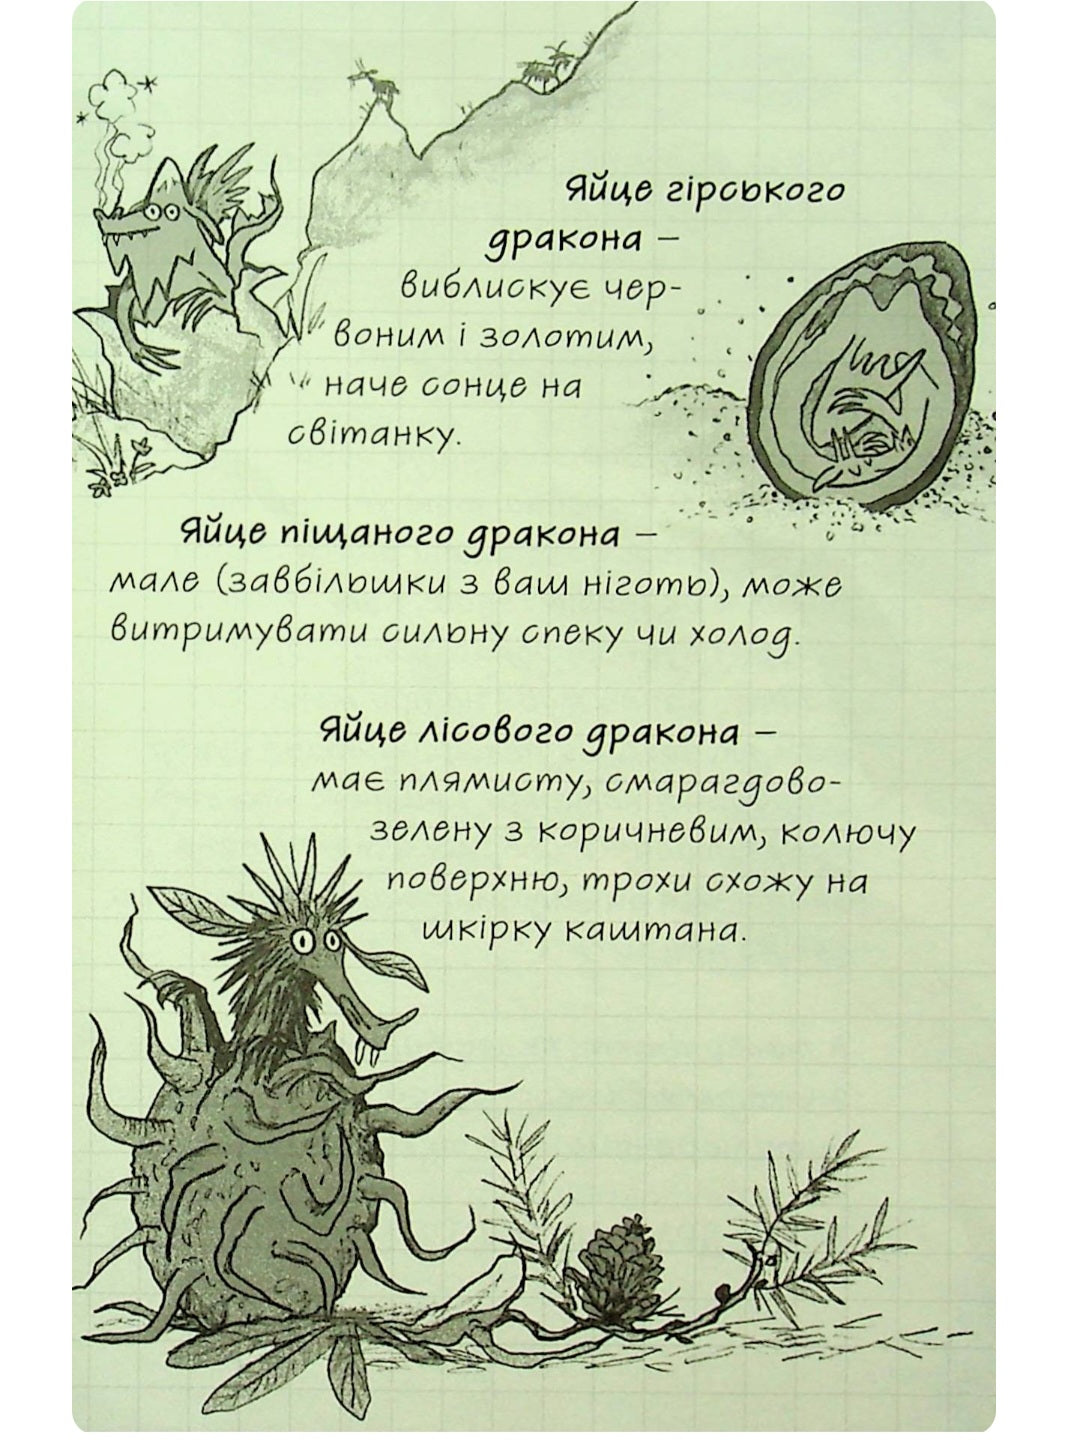 Яйце гірського
дракона –
виблискує чер-
воним і золотим,
наче сонце на
світанку.
Яйце піщаного дракона –
мале (завбільшки з ваш ніготь), може
витримувати сильну спеку чи холод.
Яйце лісового дракона –
має плямисту, смарагдово-
зелену з коричневим, колючу
поверхню, трохи схожу на
шкірку каштана.